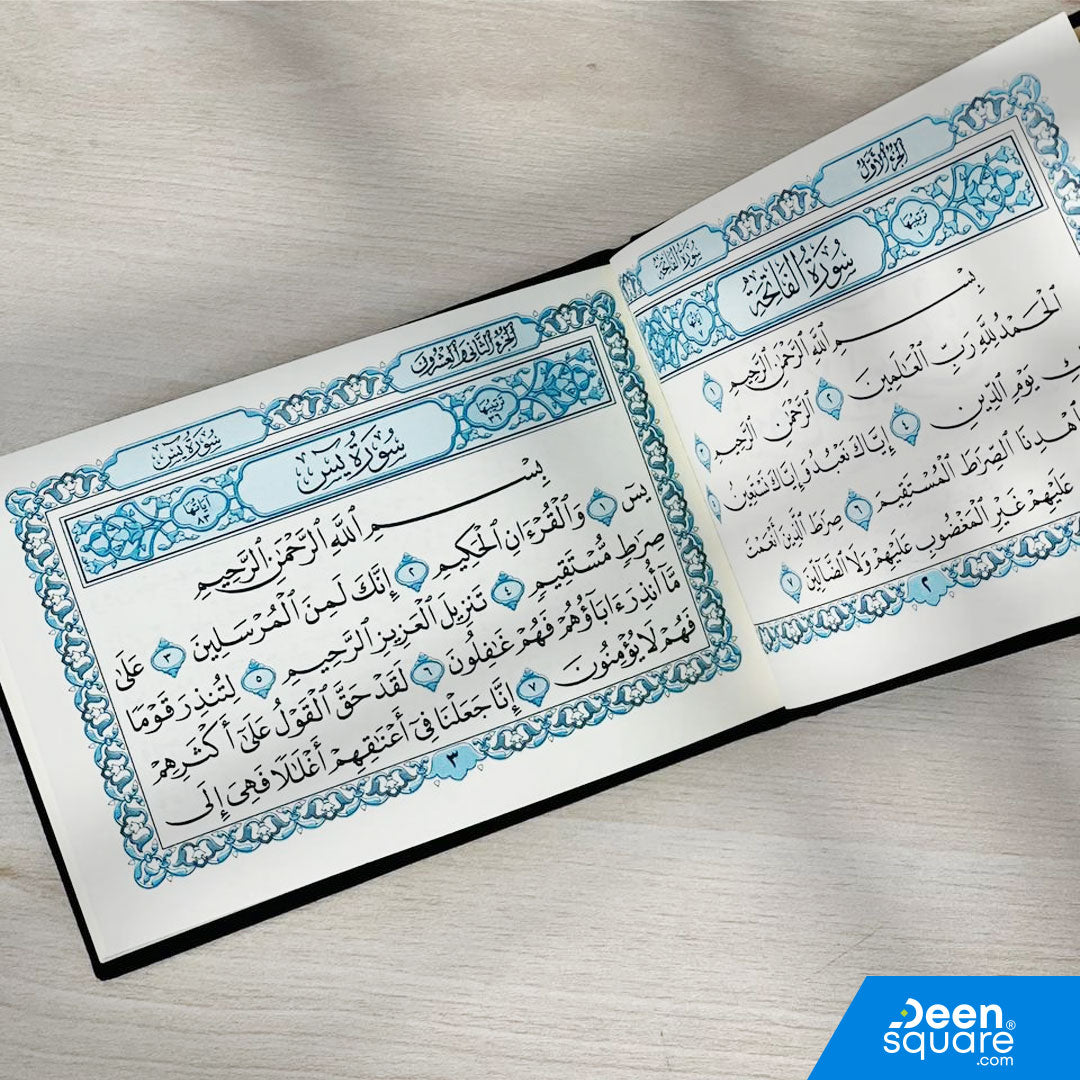 الجزء الأول
سورة الفاتحة
ترتيبها ١
سُورَةُ الفَاتِحَةِ
آياتها ٧
بِسْمِ ٱللَّهِ ٱلرَّحْمَٰنِ ٱلرَّحِيمِ ١
ٱلْحَمْدُ لِلَّهِ رَبِّ ٱلْعَٰلَمِينَ ٢ ٱلرَّحْمَٰنِ ٱلرَّحِيمِ ٣
يَوْمِ ٱلدِّينِ ٤ إِيَّاكَ نَعْبُدُ وَإِيَّاكَ نَسْتَعِينُ ٥
ٱهْدِنَا ٱلصِّرَٰطَ ٱلْمُسْتَقِيمَ ٦ صِرَٰطَ ٱلَّذِينَ أَنْعَمْتَ
عَلَيْهِمْ غَيْرِ ٱلْمَغْضُوبِ عَلَيْهِمْ وَلَا ٱلضَّآلِّينَ ٧
٢
الجزء الثاني والعشرون
سورة يس
ترتيبها ٣٦
سُورَةُ يسٓ
آياتها ٨٣
بِسْمِ ٱللَّهِ ٱلرَّحْمَٰنِ ٱلرَّحِيمِ
يسٓ ١ وَٱلْقُرْءَانِ ٱلْحَكِيمِ ٢ إِنَّكَ لَمِنَ ٱلْمُرْسَلِينَ ٣ عَلَىٰ
صِرَٰطٍ مُّسْتَقِيمٍ ٤ تَنزِيلَ ٱلْعَزِيزِ ٱلرَّحِيمِ ٥ لِتُنذِرَ قَوْمًا
مَّآ أُنذِرَ ءَابَآؤُهُمْ فَهُمْ غَٰفِلُونَ ٦ لَقَدْ حَقَّ ٱلْقَوْلُ عَلَىٰٓ أَكْثَرِهِمْ
فَهُمْ لَا يُؤْمِنُونَ ٧ إِنَّا جَعَلْنَا فِىٓ أَعْنَٰقِهِمْ أَغْلَٰلًا فَهِىَ إِلَى
٣
Deen
square®
.com